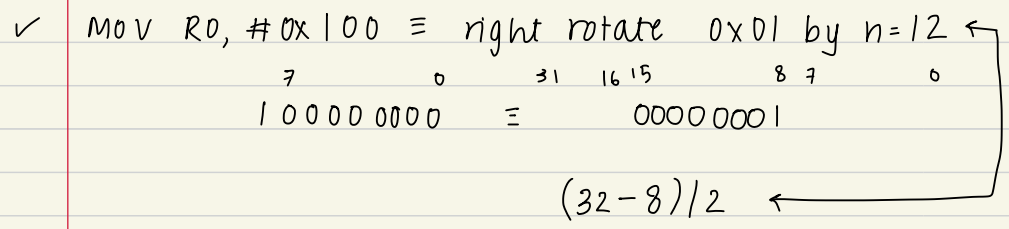 ✓ MOV R0, #0x100 ≡ right rotate 0x01 by n=12
7 0 31 16 15 8 7 0
1 0000 0000 ≡ 0000 0001
(32-8)/2